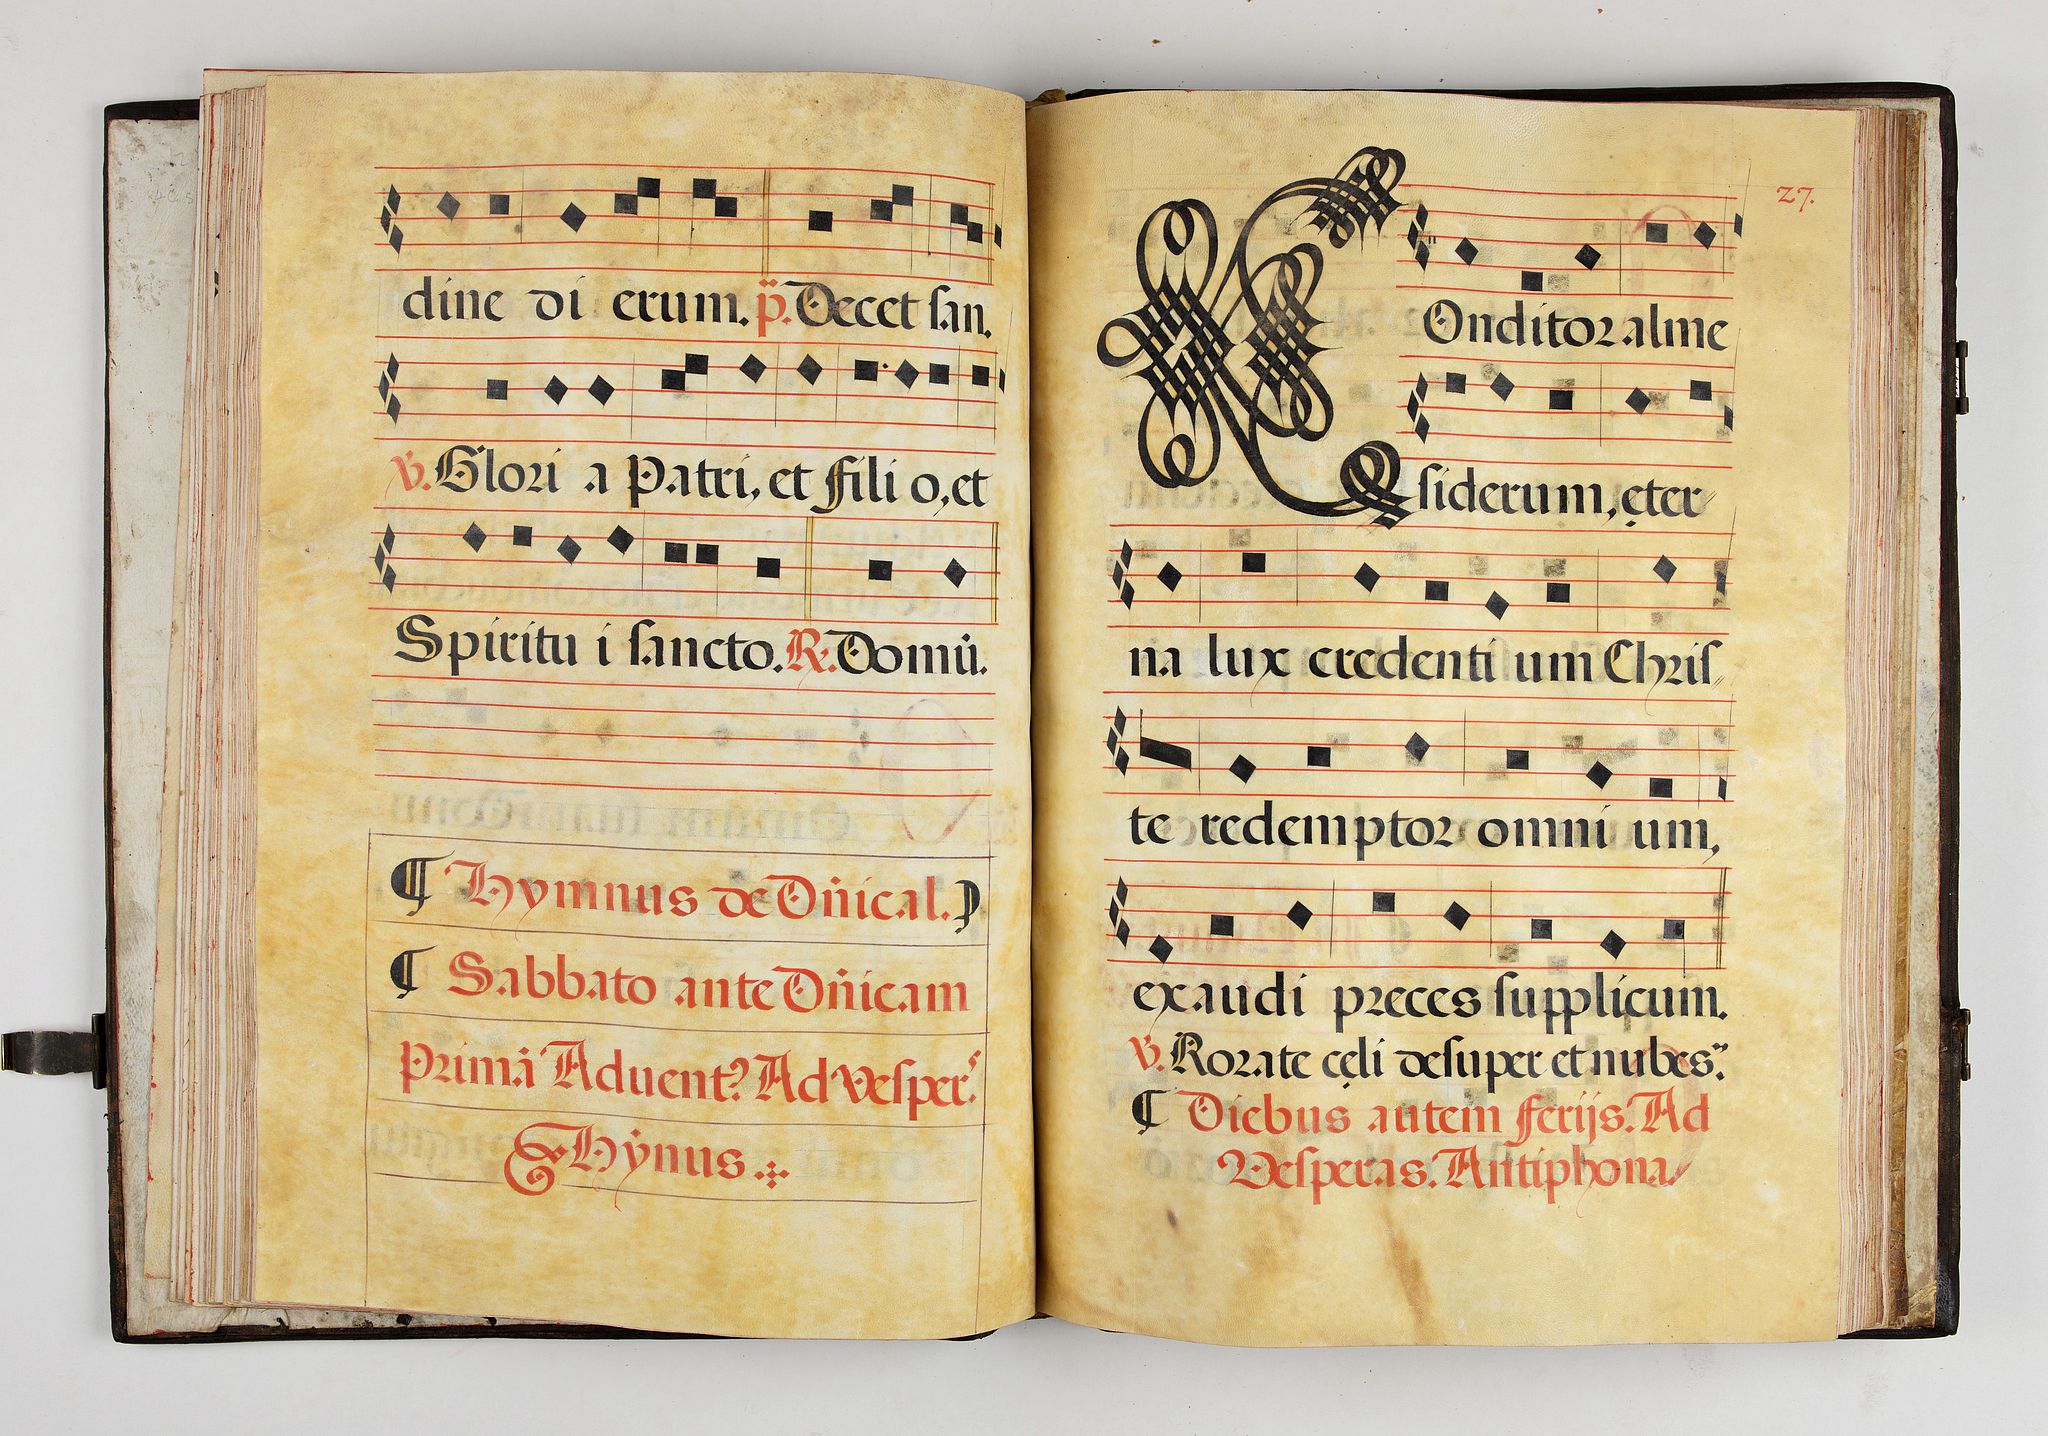 dine di erum. p̈. Decet san.
℣. Glori a Patri, et fili o, et
Spiritu i sancto. ℟. Domū.
¶ Hymnus de Dn̄ical.
¶ Sabbato ante Dn̄icam
Primā Aduent? Ad vesper.
Hȳnus.
27.
COnditor alme
siderum, ęter
na lux credenti um Chris
te redemptor omni um,
exaudi preces supplicum.
℣. Rorate cęli desuper et nubes.
¶ Diebus autem ferijs. Ad
Vesperas. Antiphona